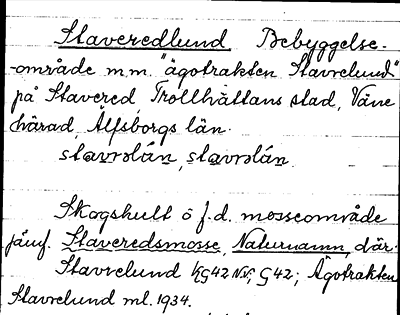 Staveredlund, Bebyggelse-
-område m.m. "ägotrakten Stavrelund"
på Stavered, Trollhättans stad, Väne
härad, Älfsborgs län.
stavrəlán, stavrəlán
Skogshult ö f.d. mosseområde
jämf. Staveredsmosse, Naturnamn, där.
Stavrelund KG42 NV, G42; Ägotrakten
Stavrelund ml. 1934.